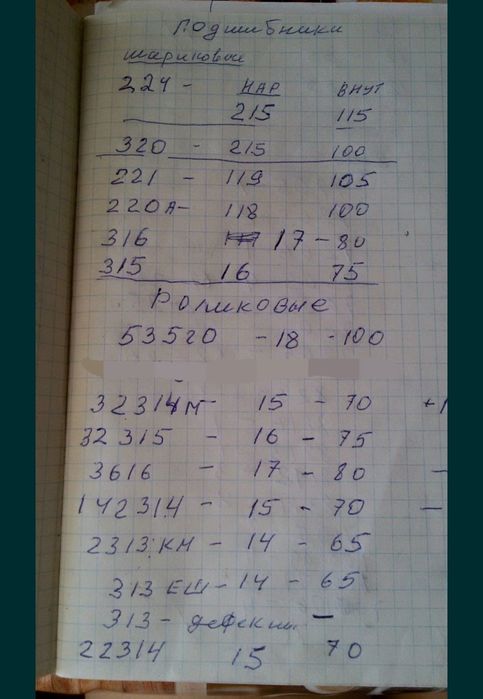 Подшибники
шариковые
224 - НАР ВНУТ
215 115
320 - 215 100
221 - 119 105
220А - 118 100
316 17 - 80
315 16 75
Роликовые
53520 - 18 - 100
32314М - 15 - 70 +1
32315 - 16 - 75
3616 - 17 - 80 -
142314 - 15 - 70 -
2313КМ - 14 - 65
313 ЕШ - 14 - 65
313 - -
22314 15 70